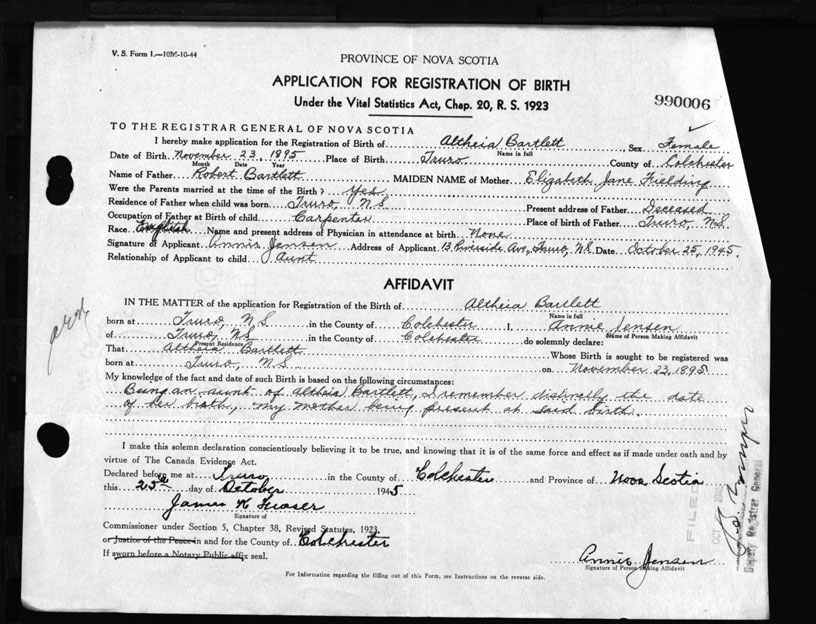 V. S. Form 1.—10M-10-44
PROVINCE OF NOVA SCOTIA
APPLICATION FOR REGISTRATION OF BIRTH
Under the Vital Statistics Act, Chap. 20, R. S. 1923
990006
TO THE REGISTRAR GENERAL OF NOVA SCOTIA
I hereby make application for the Registration of Birth of Altheia Bartlett Sex Female
Name in full
Date of Birth November 23, 1895 Place of Birth Truro County of Colchester
Month Date Year
Name of Father Robert Bartlett MAIDEN NAME of Mother Elizabeth Jane Fielding
Were the Parents married at the time of the Birth? Yes
Residence of Father when child was born Truro N S Present address of Father Deceased
Occupation of Father at Birth of child Carpenter Place of birth of Father Truro, N.S.
Race English Name and present address of Physician in attendance at birth None
Signature of Applicant Annie Jensen Address of Applicant 13 Riverside Ave, Truro, N.S. Date October 25, 1945.
Relationship of Applicant to child Aunt
AFFIDAVIT
IN THE MATTER of the application for Registration of the Birth of Altheia Bartlett
Name in full
born at Truro, N S in the County of Colchester I, Annie Jensen
Name of Person Making Affidavit
of Truro, N S in the County of Colchester do solemnly declare:
Present Residence
That Altheia Bartlett Whose Birth is sought to be registered was
born at Truro, N S. on November 23, 1895
My knowledge of the fact and date of such Birth is based on the following circumstances:
Being an aunt of Altheia Bartlett, I remember distinctly the date
of her birth, my mother being present at said birth.
I make this solemn declaration conscientiously believing it to be true, and knowing that it is of the same force and effect as if made under oath and by
virtue of The Canada Evidence Act.
Declared before me at Truro in the County of Colchester and Province of Nova Scotia
this 25th day of October 1945
James K Fraser
Signature of
Commissioner under Section 5, Chapter 38, Revised Statutes, 1923,
or Justice of the Peace in and for the County of Colchester
If sworn before a Notary Public affix seal.
Annie Jensen
Signature of Person Making Affidavit
For Information regarding the filling out of this Form, see Instructions on the reverse side.
FILED
Deputy Registrar General